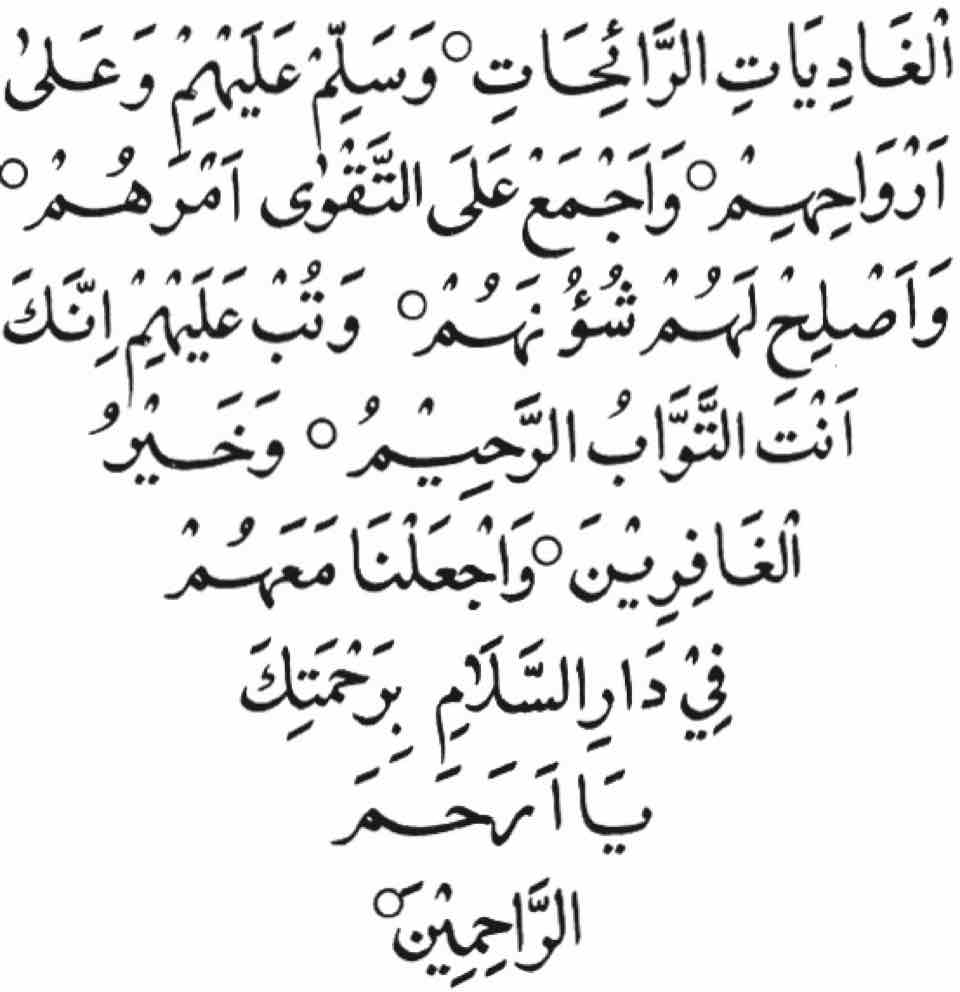 الْغَادِيَاتِ الرَّائِحَاتِ ○ وَسَلِّمْ عَلَيْهِمْ وَعَلىٰ
اَرْوَاحِهِمْ ○ وَاَجْمَعْ عَلَى التَّقْوٰى اَمْرَهُمْ ○
وَاَصْلِحْ لَهُمْ شُؤُنَهُمْ ○ وَتُبْ عَلَيْهِمْ اِنَّكَ
اَنْتَ التَّوَّابُ الرَّحِيْمُ ○ وَخَيْرُ
الْغَافِرِيْنَ ○ وَاَجْعَلْنَا مَعَهُمْ
فِيْ دَارِ السَّلَامِ بِرَحْمَتِكَ
يَا اَرَحَمَ
الرَّاحِمِيْنَ ○